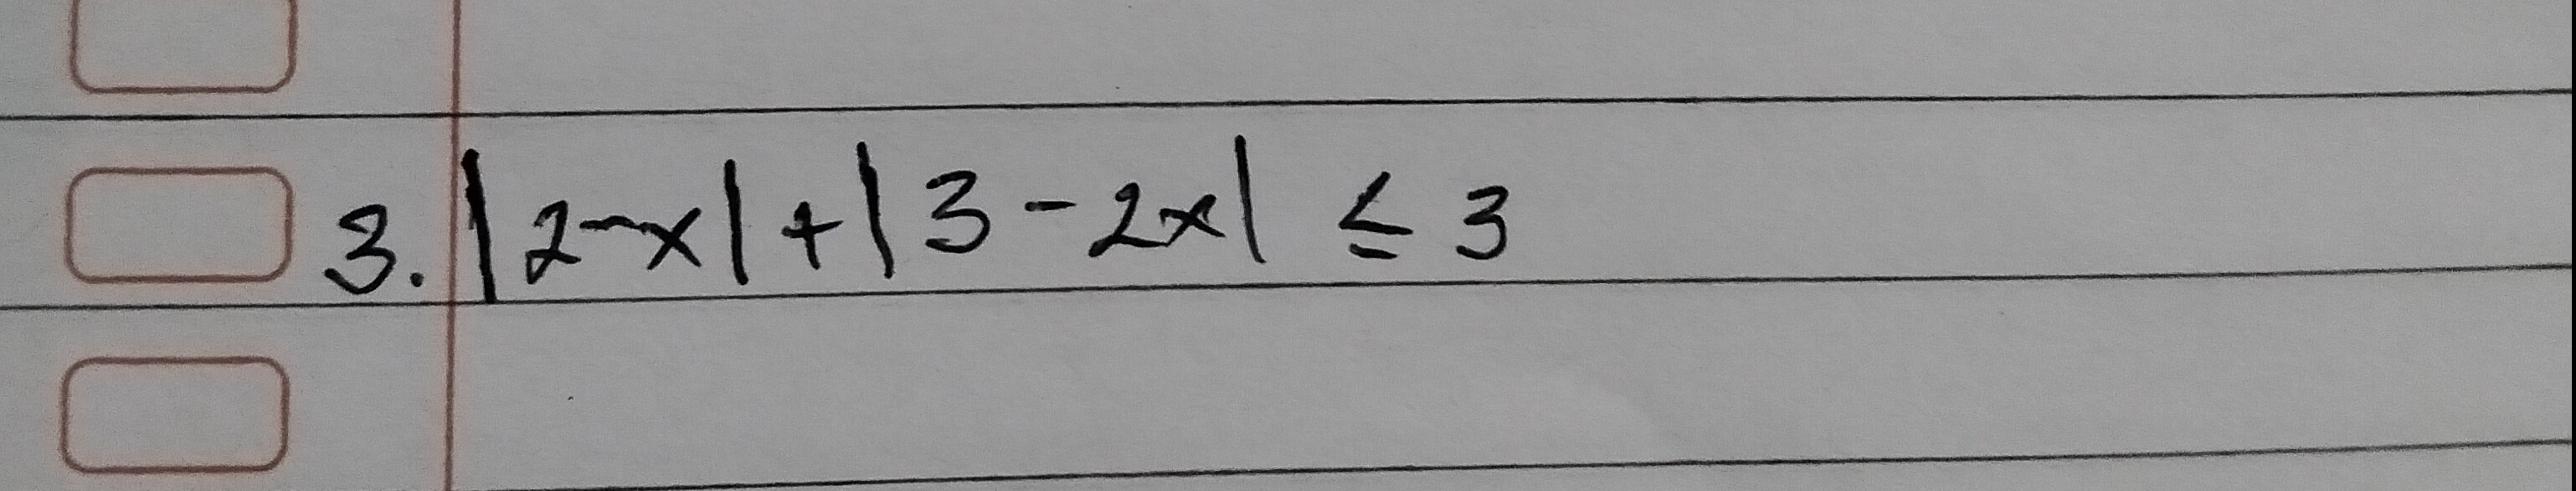 3. |2-x|+|3-2x| ≤ 3